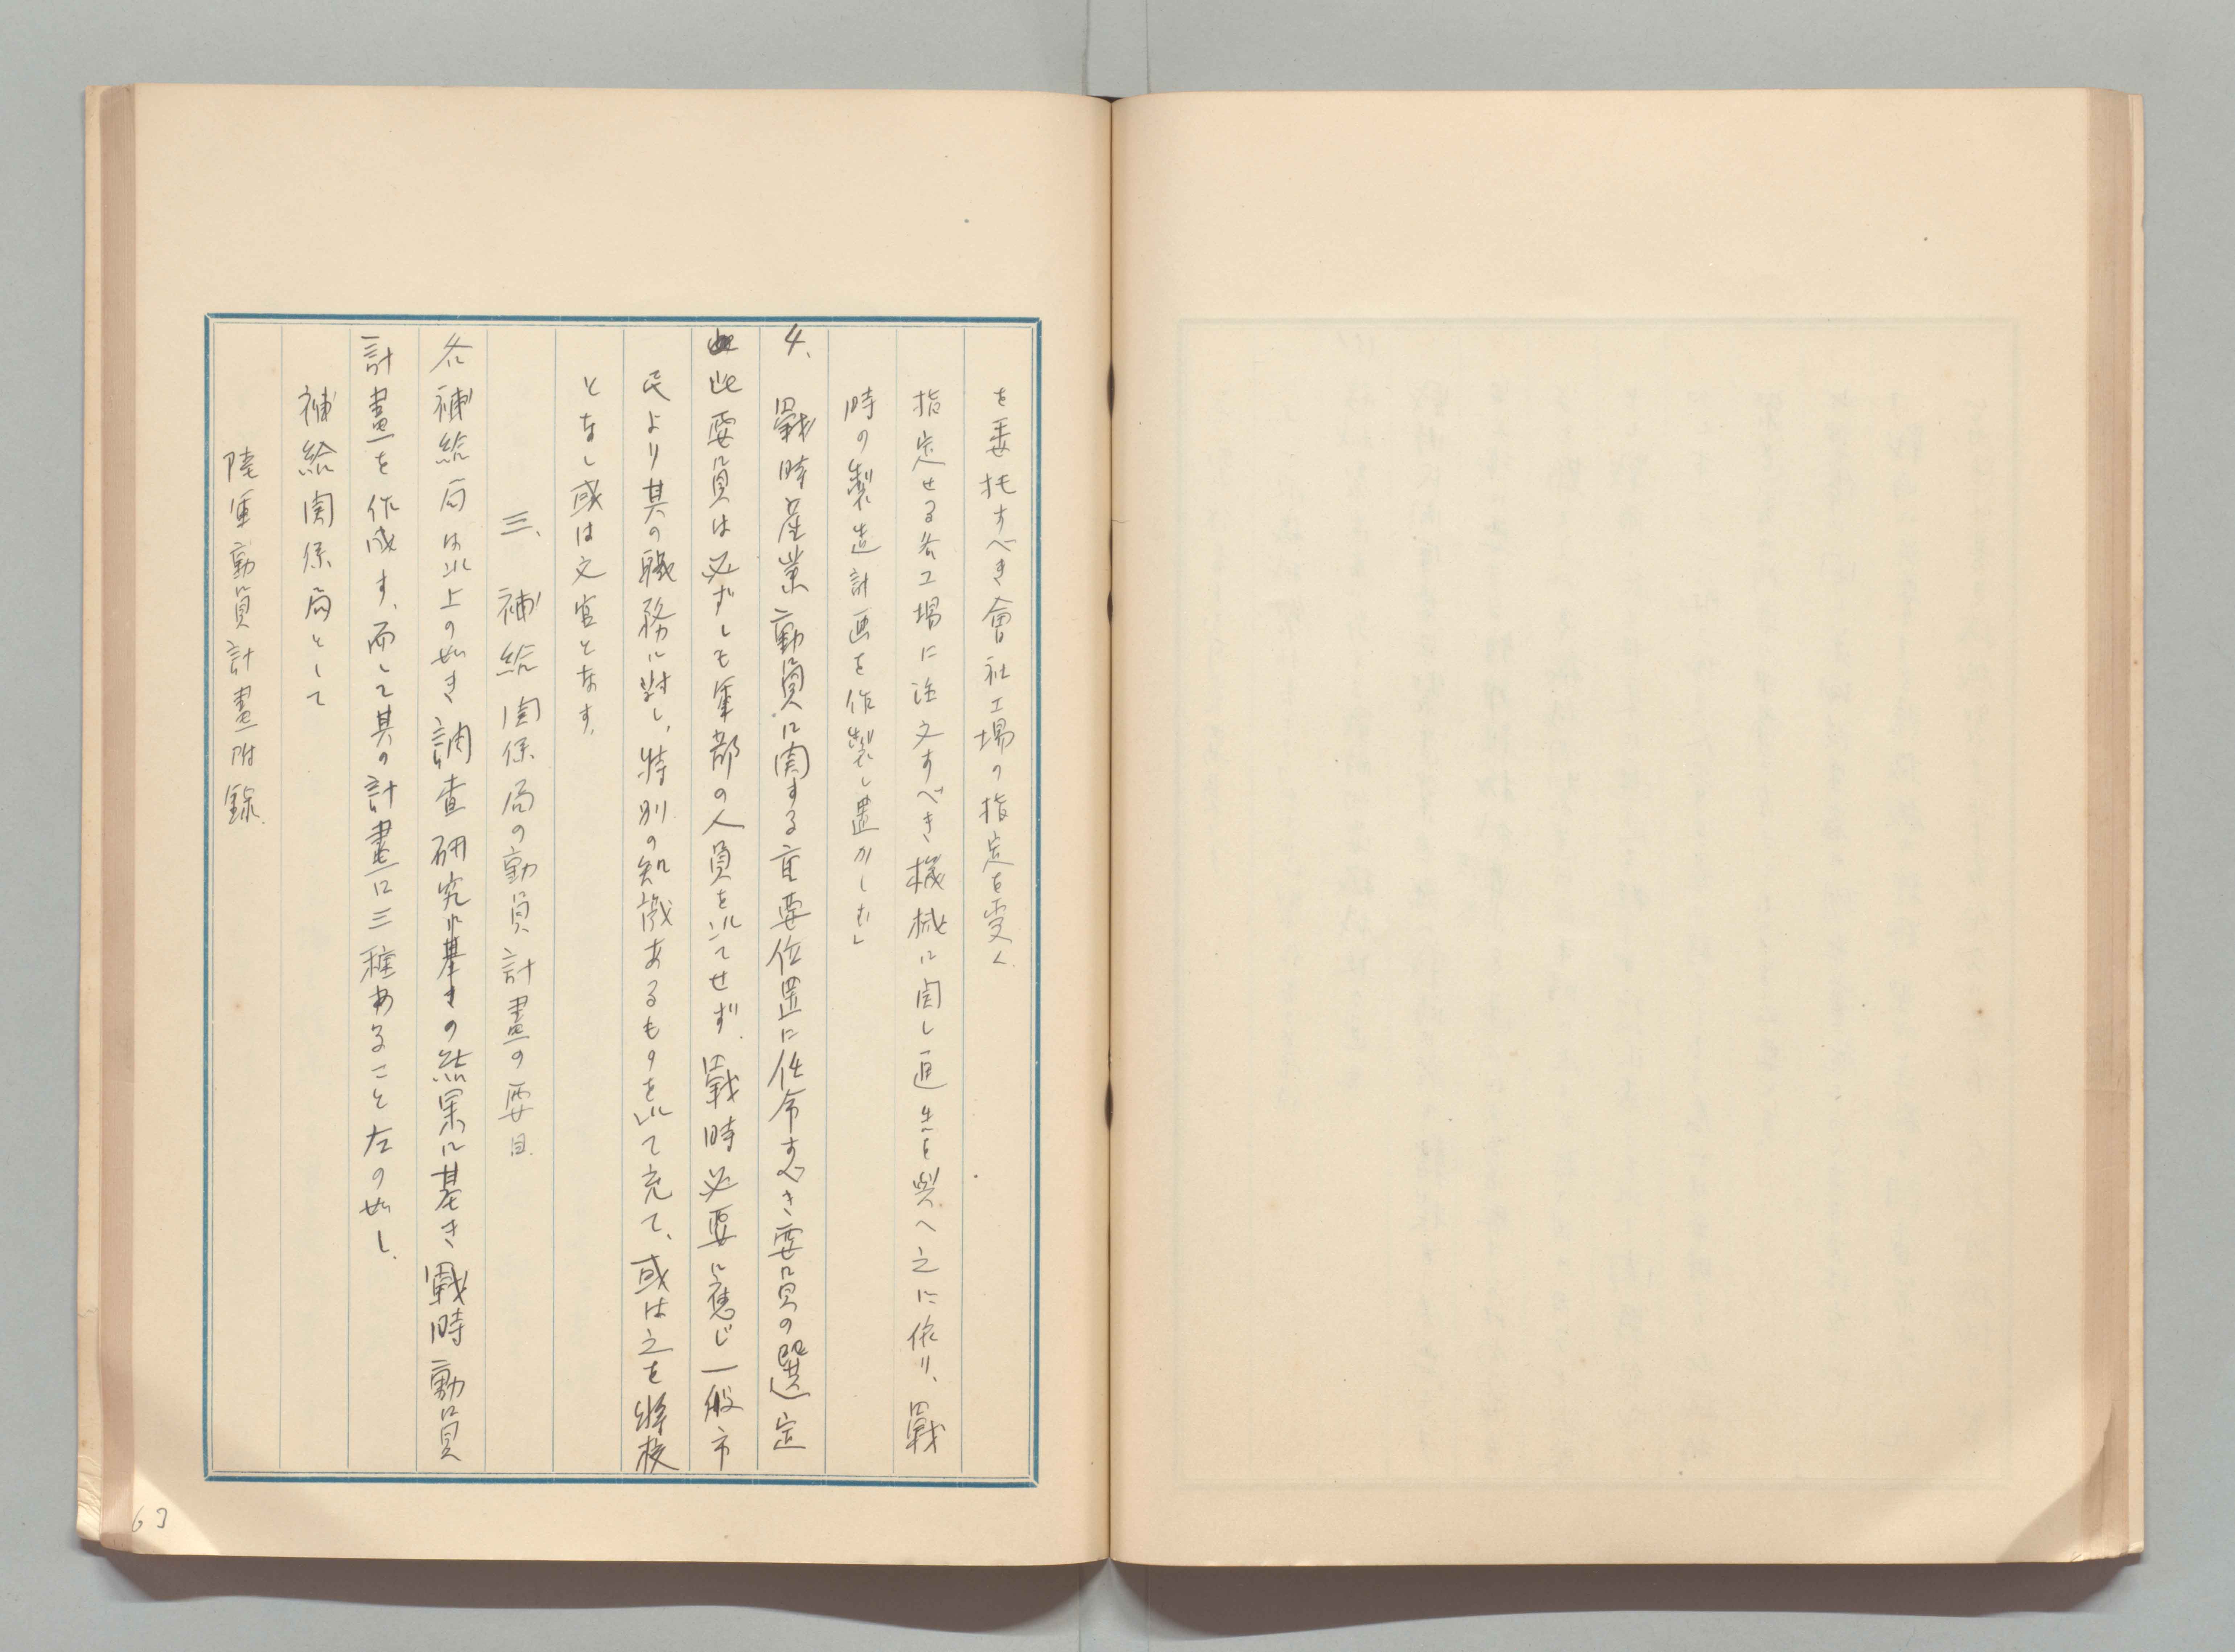 を委托すべき會社工場の指定を受く.
指定せる各工場に注文すべき機械に関し通告を與へ之に依り、戰
時の製造計画を作製し置かしむ」
4、戰時産業動員に関する重要位置に任命すべき要員の選定
此要員は必ずしも軍部の人員を以てせず.戰時必要に應じ一般市
民より其の職務に対し、特別の知識あるものを以て充て、或は之を將校
となし或は文官となす.
三、補給関係局の動員計畫の要目.
各補給局は以上の如き調査研究の結果に基き戰時動員
計畫を作成す、而して其の計畫に三種あること左の如し.
補給関係局として
陸軍動員計畫附録.
63